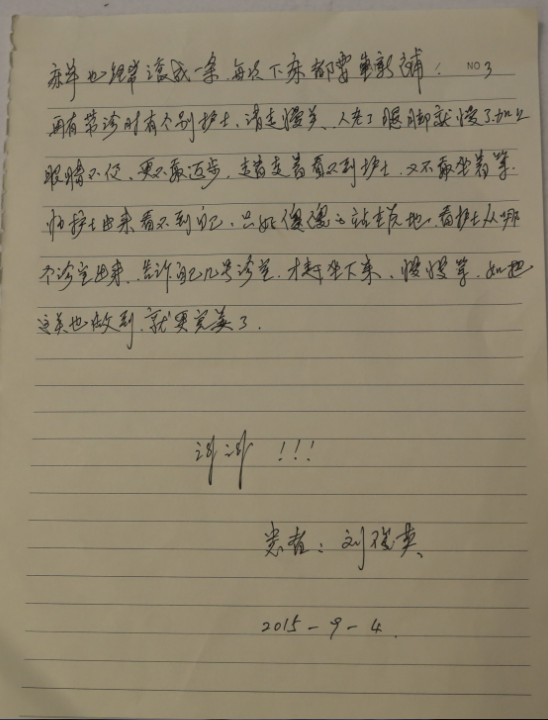 床单也经常滚成一条,每次下床都要重新铺! NO 3
再有带诊时有个别护士,请走慢点,人老了腿脚就慢了,加上
眼睛不好,更不敢迈步,走着走着看不到护士,又不敢坐着等.
怕护士出来看不到自己,只好傻傻的站在原地,看护士从哪
个诊室出来,告诉自己几号诊室,才敢坐下来,慢慢等,如把
这点也做到,就更完美了.
谢谢 !!!
患者:刘俊英、
2015-9-4.